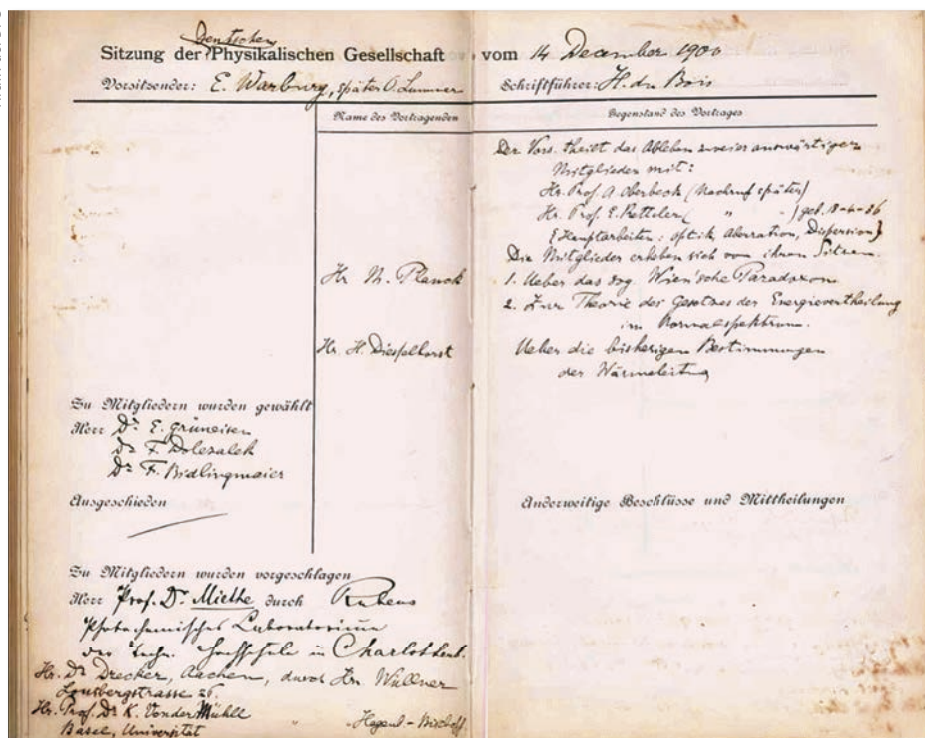 Deutschen
Sitzung der Physikalischen Gesellschaft vom 14 December 1900
Vorsitzender: E. Warburg, später O. Lummer
Schriftführer: H. du Bois
Name des Vortragenden
Gegenstand des Vortrages
Der Vors. theilt das Ableben zweier auswärtiger
Mitglieder mit:
Hr. Prof. A. Oberbeck (Nachruf später)
Hr. Prof. E. Ketteler ( " - ) geb. 18-4-36
{Hauptarbeiten: optik, Aberration, Dispersion}
Die Mitglieder erheben sich von ihren Sitzen.
Hr M. Planck
1. Ueber das sog. Wien'sche Paradoxon
2. Zur Theorie des Gesetzes der Energievertheilung
im Normalspektrum.
Hr. H. Diesselhorst
Ueber die bisherigen Bestimmungen
der Wärmeleitung
Zu Mitgliedern wurden gewählt
Herr Dr E. Grüneisen
Dr F. Dolezalek
Dr F. Bidlingmaier
Ausgeschieden
Anderweitige Beschlüsse und Mittheilungen
Zu Mitgliedern wurden vorgeschlagen
Herr Prof. Dr Miethe durch Rubens
Photochemisches Laboratorium
der techn. Hochschule in Charlottenb.
Hr. Dr Drecker, Aachen, durch Hrn. Wüllner
Lousbergstrasse 26.
Hr. Prof. Dr K. VonderMühll
Basel, Universität
" Hagenb-Bischoff.